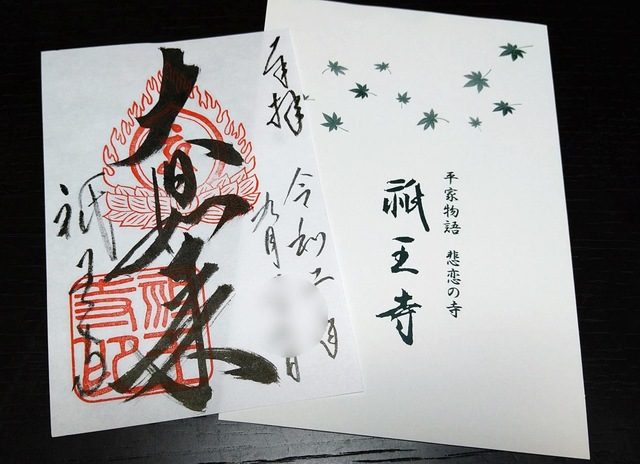 平家物語 悲恋の寺
祇王寺
奉拝
令和二年
九月 日
大日如来
祇王寺
祇王寺印